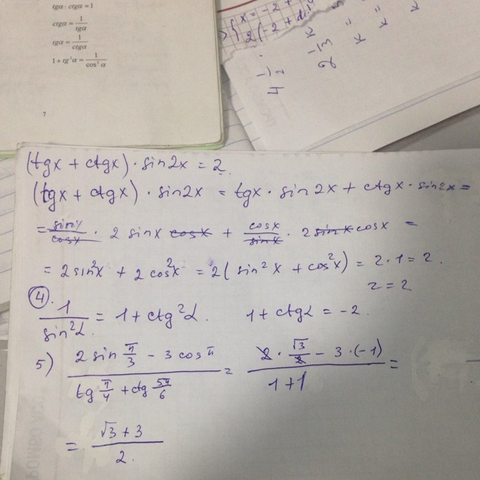 tgα · ctgα = 1
ctgα = 1/tgα
tgα = 1/ctgα
1 + tg²α = 1/cos²α
7
(tgx + ctgx) · sin2x = 2
(tgx + ctgx) · sin2x = tgx · sin2x + ctgx · sin2x =
= sinx/cosx · 2 sinx cosx + cosx/sinx · 2 sinx cosx =
= 2 sin²x + 2 cos²x = 2(sin²x + cos²x) = 2·1 = 2.
2 = 2
④ 1/sin²α = 1 + ctg²α 1 + ctgα = -2.
5) (2 sin π/3 - 3 cos π)/(tg π/4 + ctg 5π/6) = (2 · √3/2 - 3·(-1))/(1+1) =
= (√3 + 3)/2.